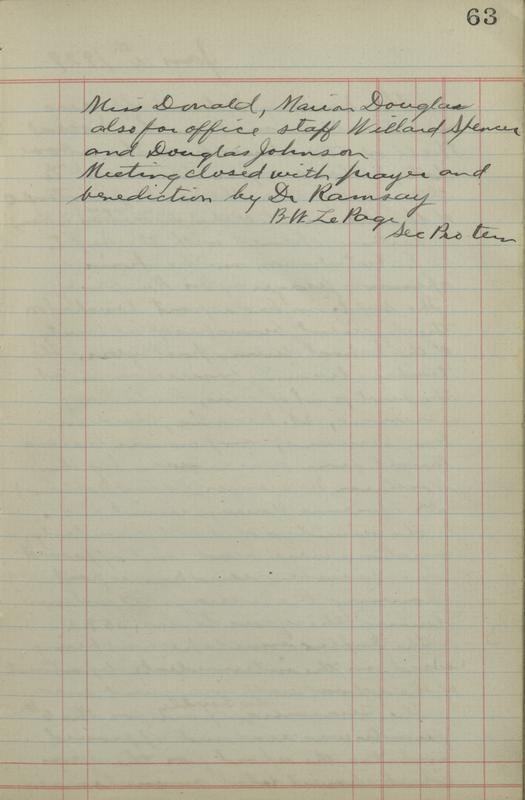 63
Miss Donald, Marion Douglas
also for office staff Willard Spencer
and Douglas Johnson
Meeting closed with prayer and
benediction by Dr Ramsay
B W Le Page
Sec Pro tem